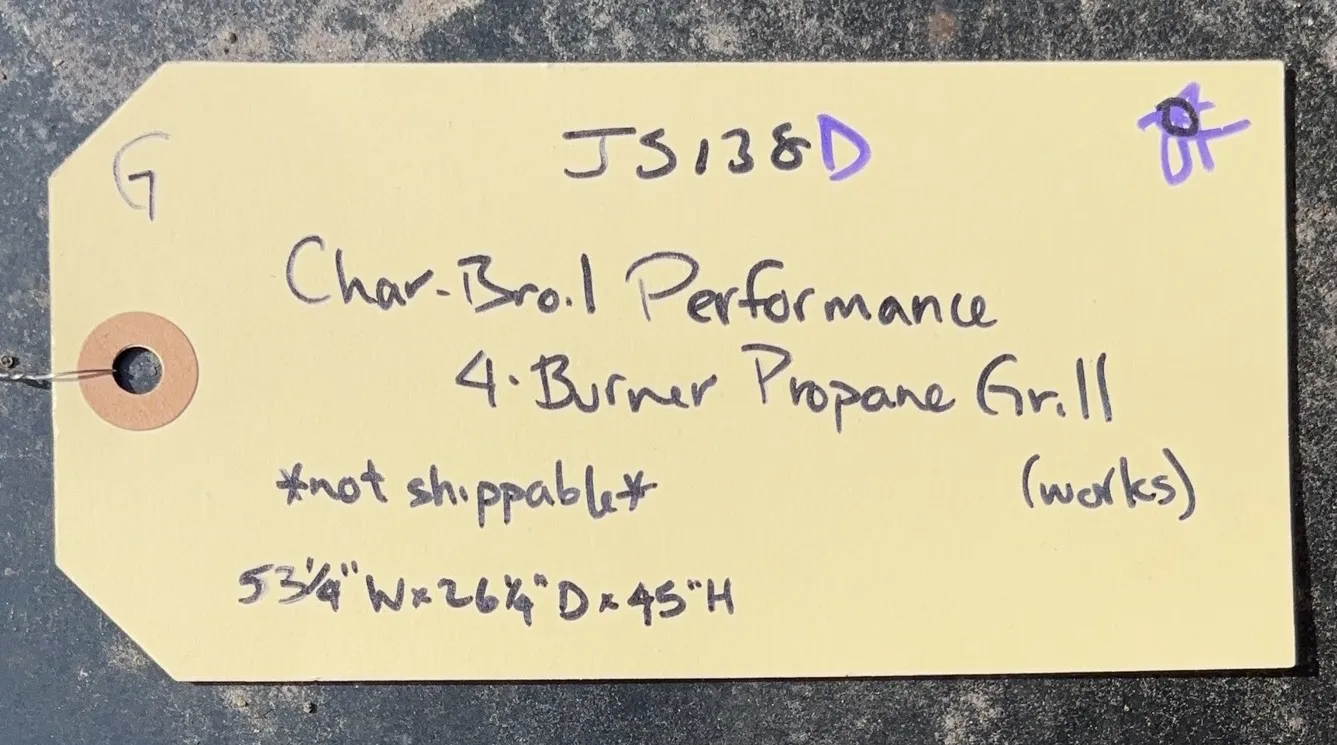 G
JS138D
Char-Broil Performance
4-Burner Propane Grill
*not shippable*
(works)
53 1/4" W x 26 1/4" D x 45" H